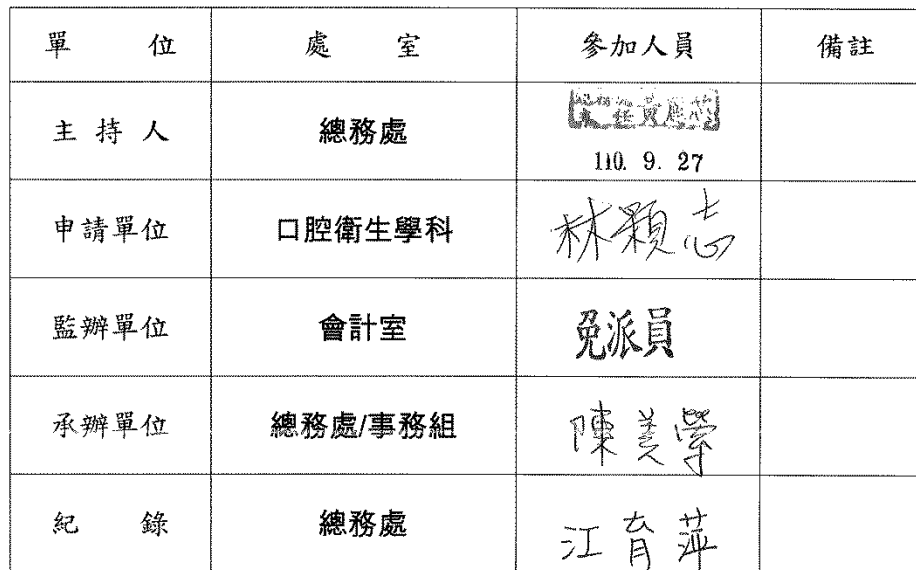 單 位 處 室 參加人員 備註
主 持 人 總務處
110. 9. 27
申請單位 口腔衛生學科 林穎志
監辦單位 會計室 免派員
承辦單位 總務處/事務組 陳美縈
紀 錄 總務處 江育萍